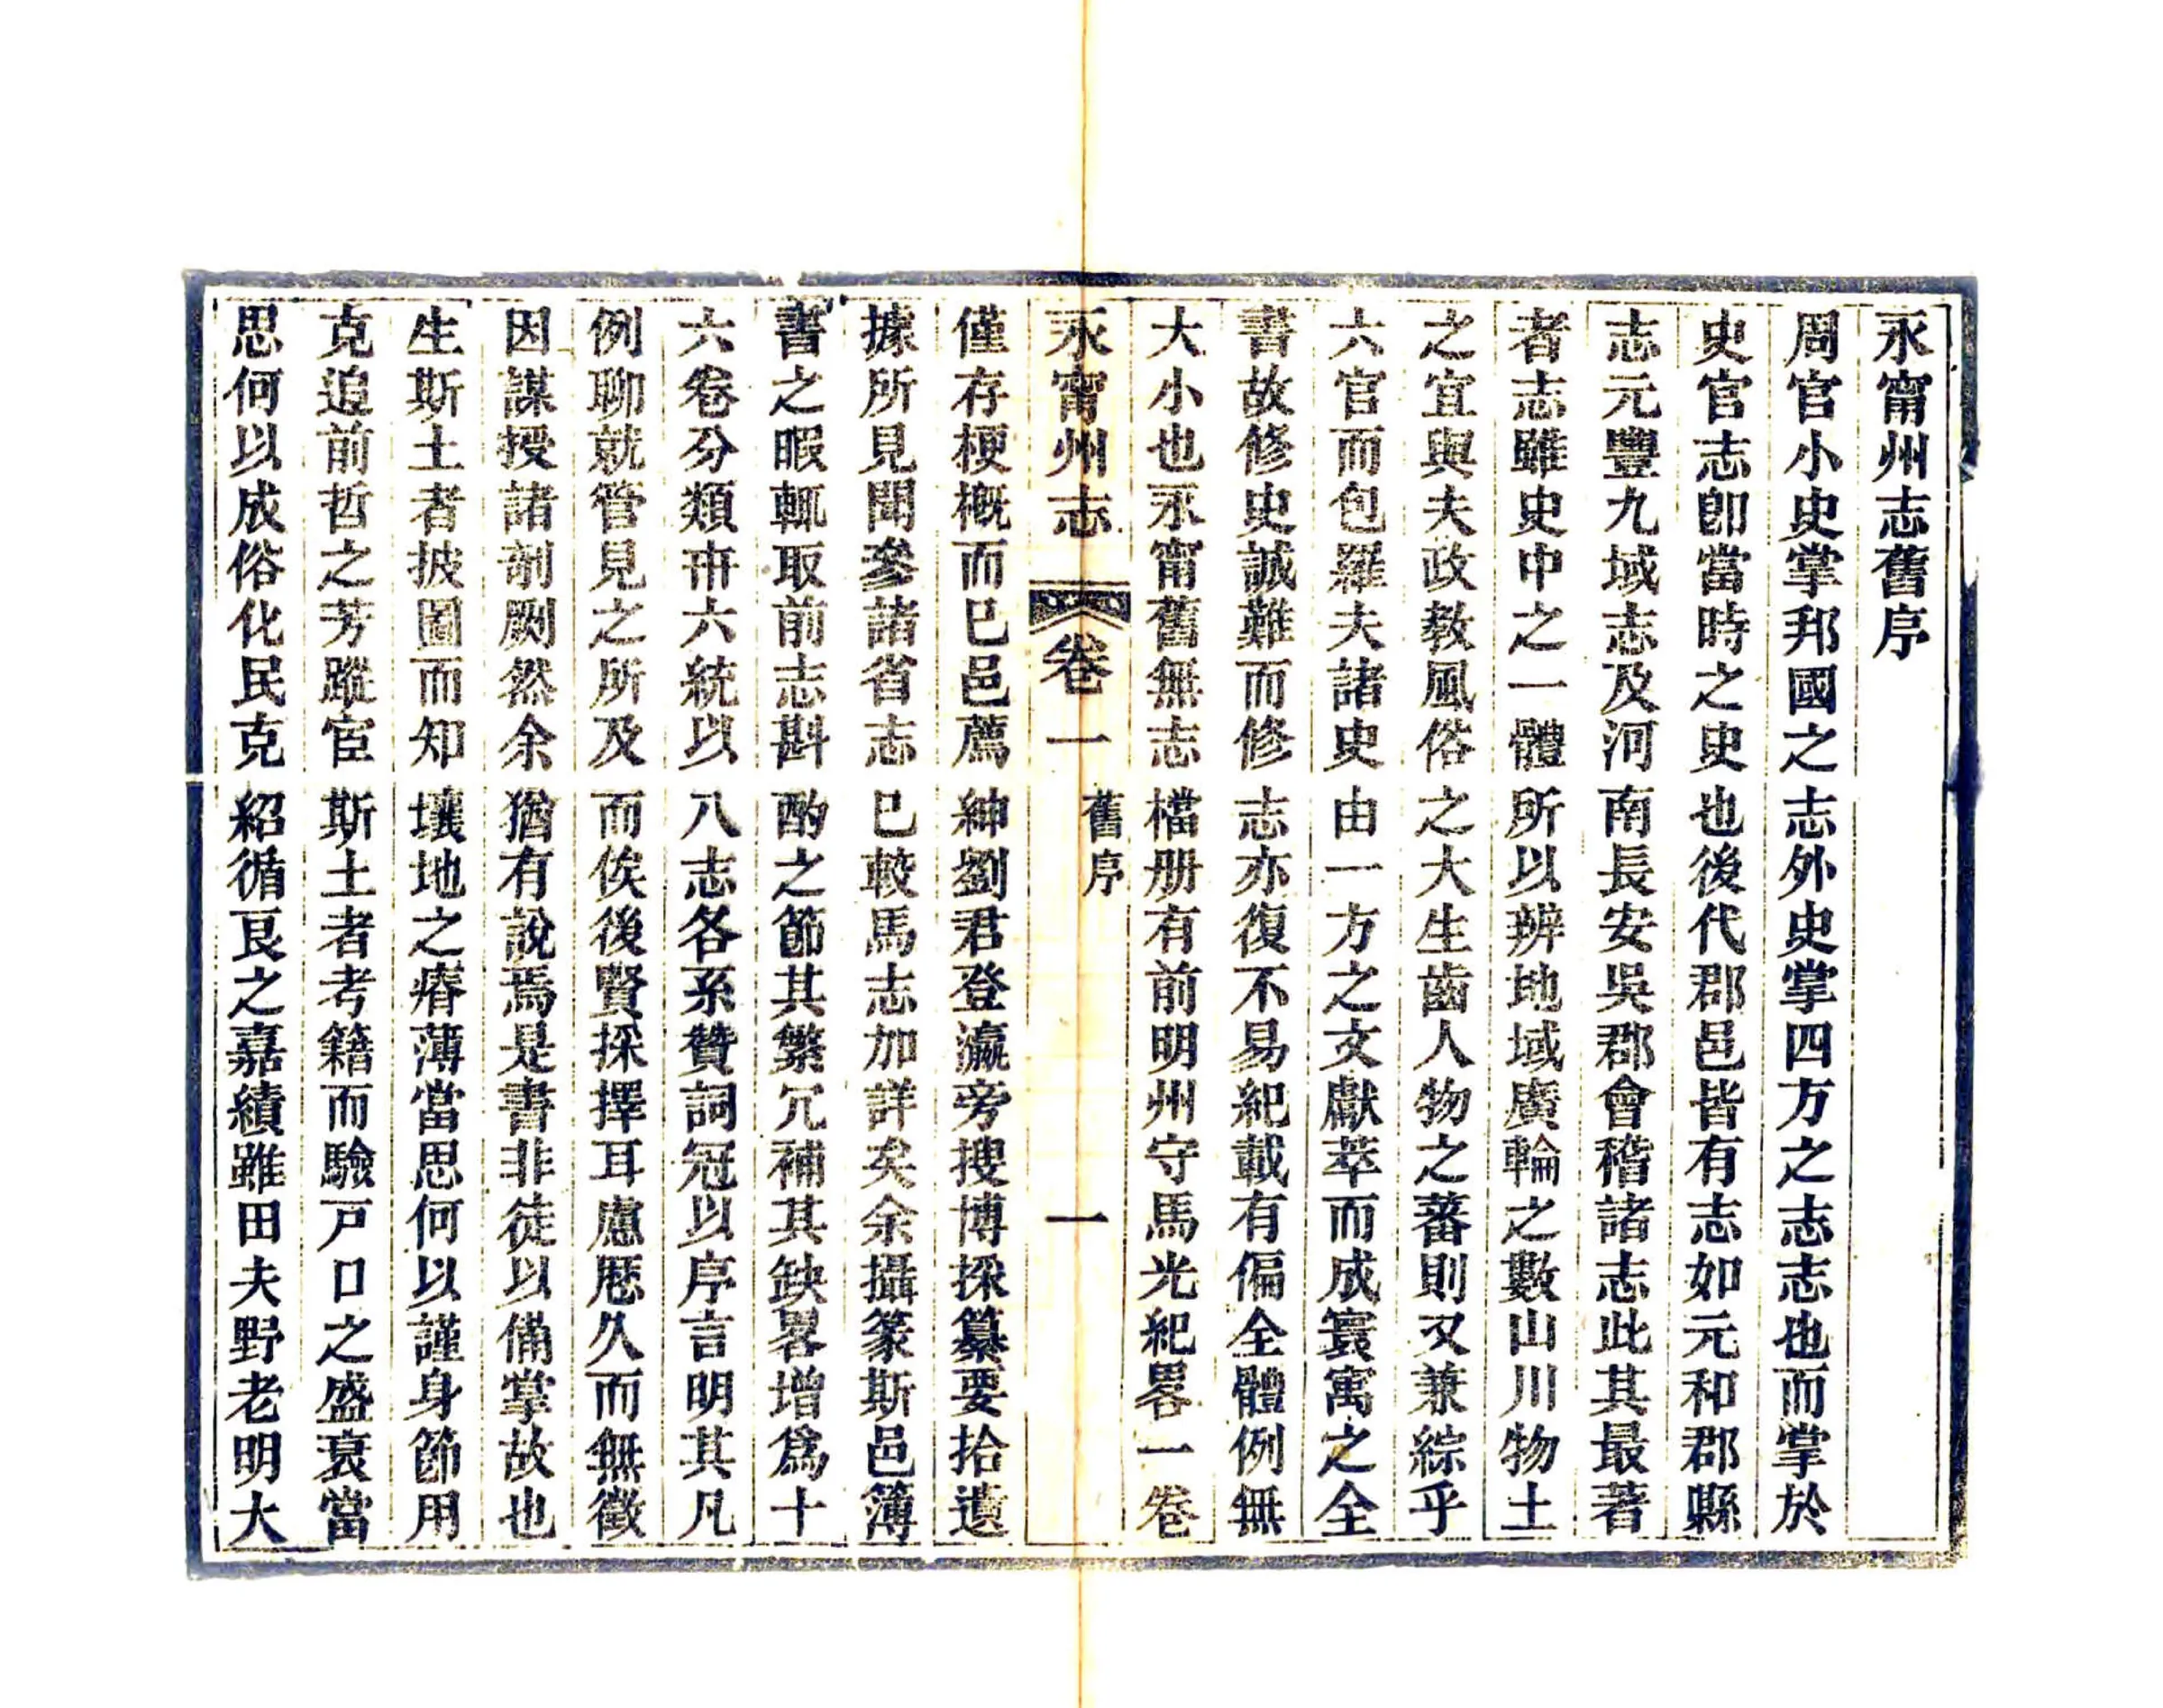 永甯州志舊序
周官小史掌邦國之志外史掌四方之志志也而掌於
史官志卽當時之史也後代郡邑皆有志如元和郡縣
志元豐九域志及河南長安吳郡會稽諸志此其最著
者志雖史中之一體所以辨地域廣輪之數山川物土
之宜與夫政教風俗之大生齒人物之蕃則又兼綜乎
六官而包羅夫諸史由一方之文獻萃而成寰寓之全
書故修史誠難而修志亦復不易紀載有偏全體例無
大小也永甯舊無志檔册有前明州守馬光紀畧一卷
永甯州志 卷一 舊序 一
僅存梗概而已邑薦紳劉君登瀛旁搜博採纂要拾遺
據所見聞參諸省志已較馬志加詳矣余攝篆斯邑簿
書之暇輒取前志斟酌之節其繁冗補其缺畧增爲十
六卷分類冊六統以八志各系贊詞冠以序言明其凡
例聊就管見之所及而俟後賢採擇耳慮歷久而無徵
因謀授諸剞劂然余猶有說焉是書非徒以備掌故也
生斯土者披圖而知壤地之瘠薄當思何以謹身節用
克追前哲之芳蹤宦斯土者考籍而驗戸口之盛衰當
思何以成俗化民克紹循良之嘉績雖田夫野老明大